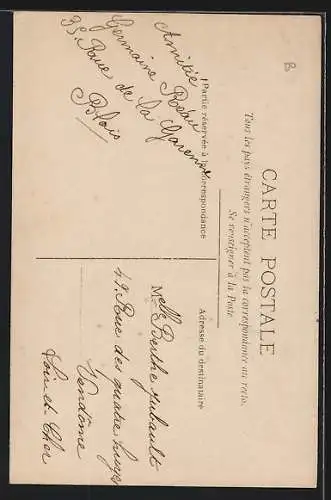 CARTE POSTALE
Tous les pays étrangers n'acceptent pas la correspondance au recto.
Se renseigner à la Poste
Partie réservée à la Correspondance
Adresse du destinataire
Amitié
Germaine Réau
35 Rue de la Garenne
Blois
Melle Berthe Jubault
49. Rue des quatre huyes
Vendôme
Loir et Cher
B